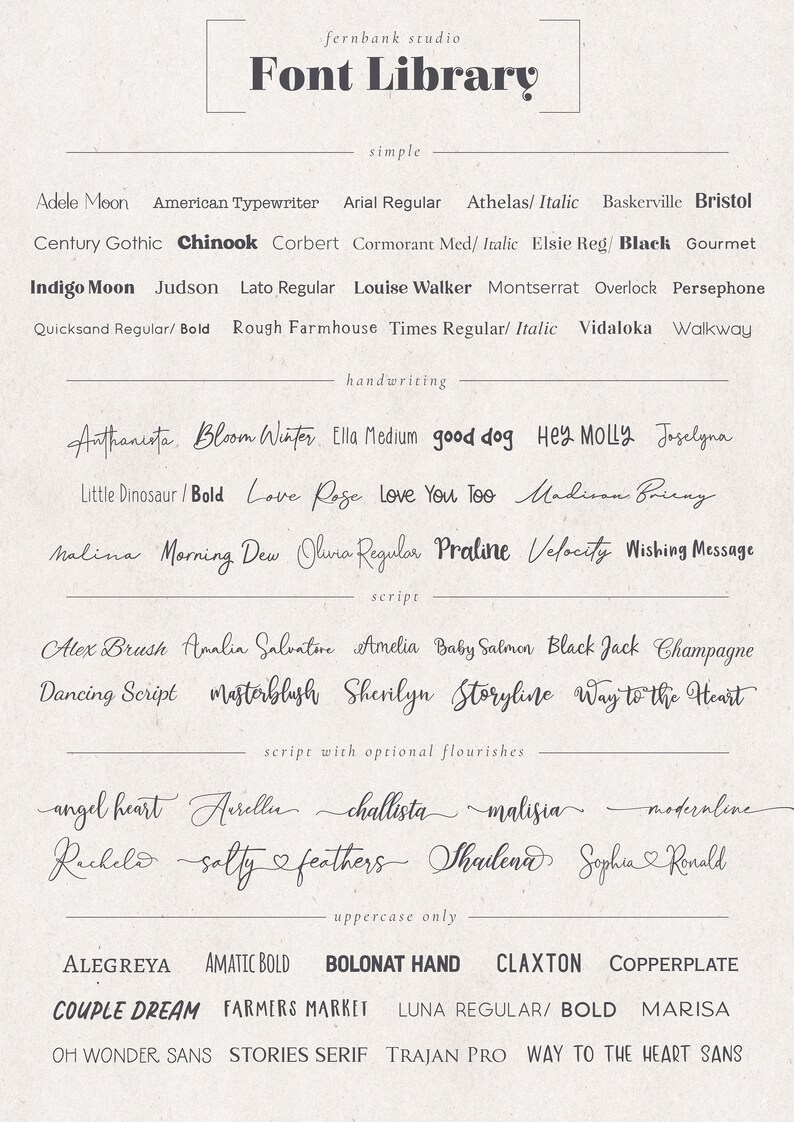 fernbank studio
Font Library
simple
Adele Moon American Typewriter Arial Regular Athelas/ Italic Baskerville Bristol
Century Gothic Chinook Corbert Cormorant Med/ Italic Elsie Reg/ Black Gourmet
Indigo Moon Judson Lato Regular Louise Walker Montserrat Overlock Persephone
Quicksand Regular/ Bold Rough Farmhouse Times Regular/ Italic Vidaloka Walkway
handwriting
Anthanista Bloom Winter Ella Medium good dog Hey MOLLY Joselyna
Little Dinosaur / Bold Love Rose Love You Too Madison Brieny
Malina Morning Dew Olivia Regular Praline Velocity Wishing Message
script
Alex Brush Amalia Salvatore Amelia Baby Salmon Black Jack Champagne
Dancing Script Masterblush Sherilyn Storyline Way to the Heart
script with optional flourishes
angel heart Aurellia challista malisia modernline
Rachela salty feathers Shailena Sophia Ronald
uppercase only
ALEGREYA AMATIC BOLD BOLONAT HAND CLAXTON COPPERPLATE
COUPLE DREAM FARMERS MARKET LUNA REGULAR/ BOLD MARISA
OH WONDER SANS STORIES SERIF TRAJAN PRO WAY TO THE HEART SANS